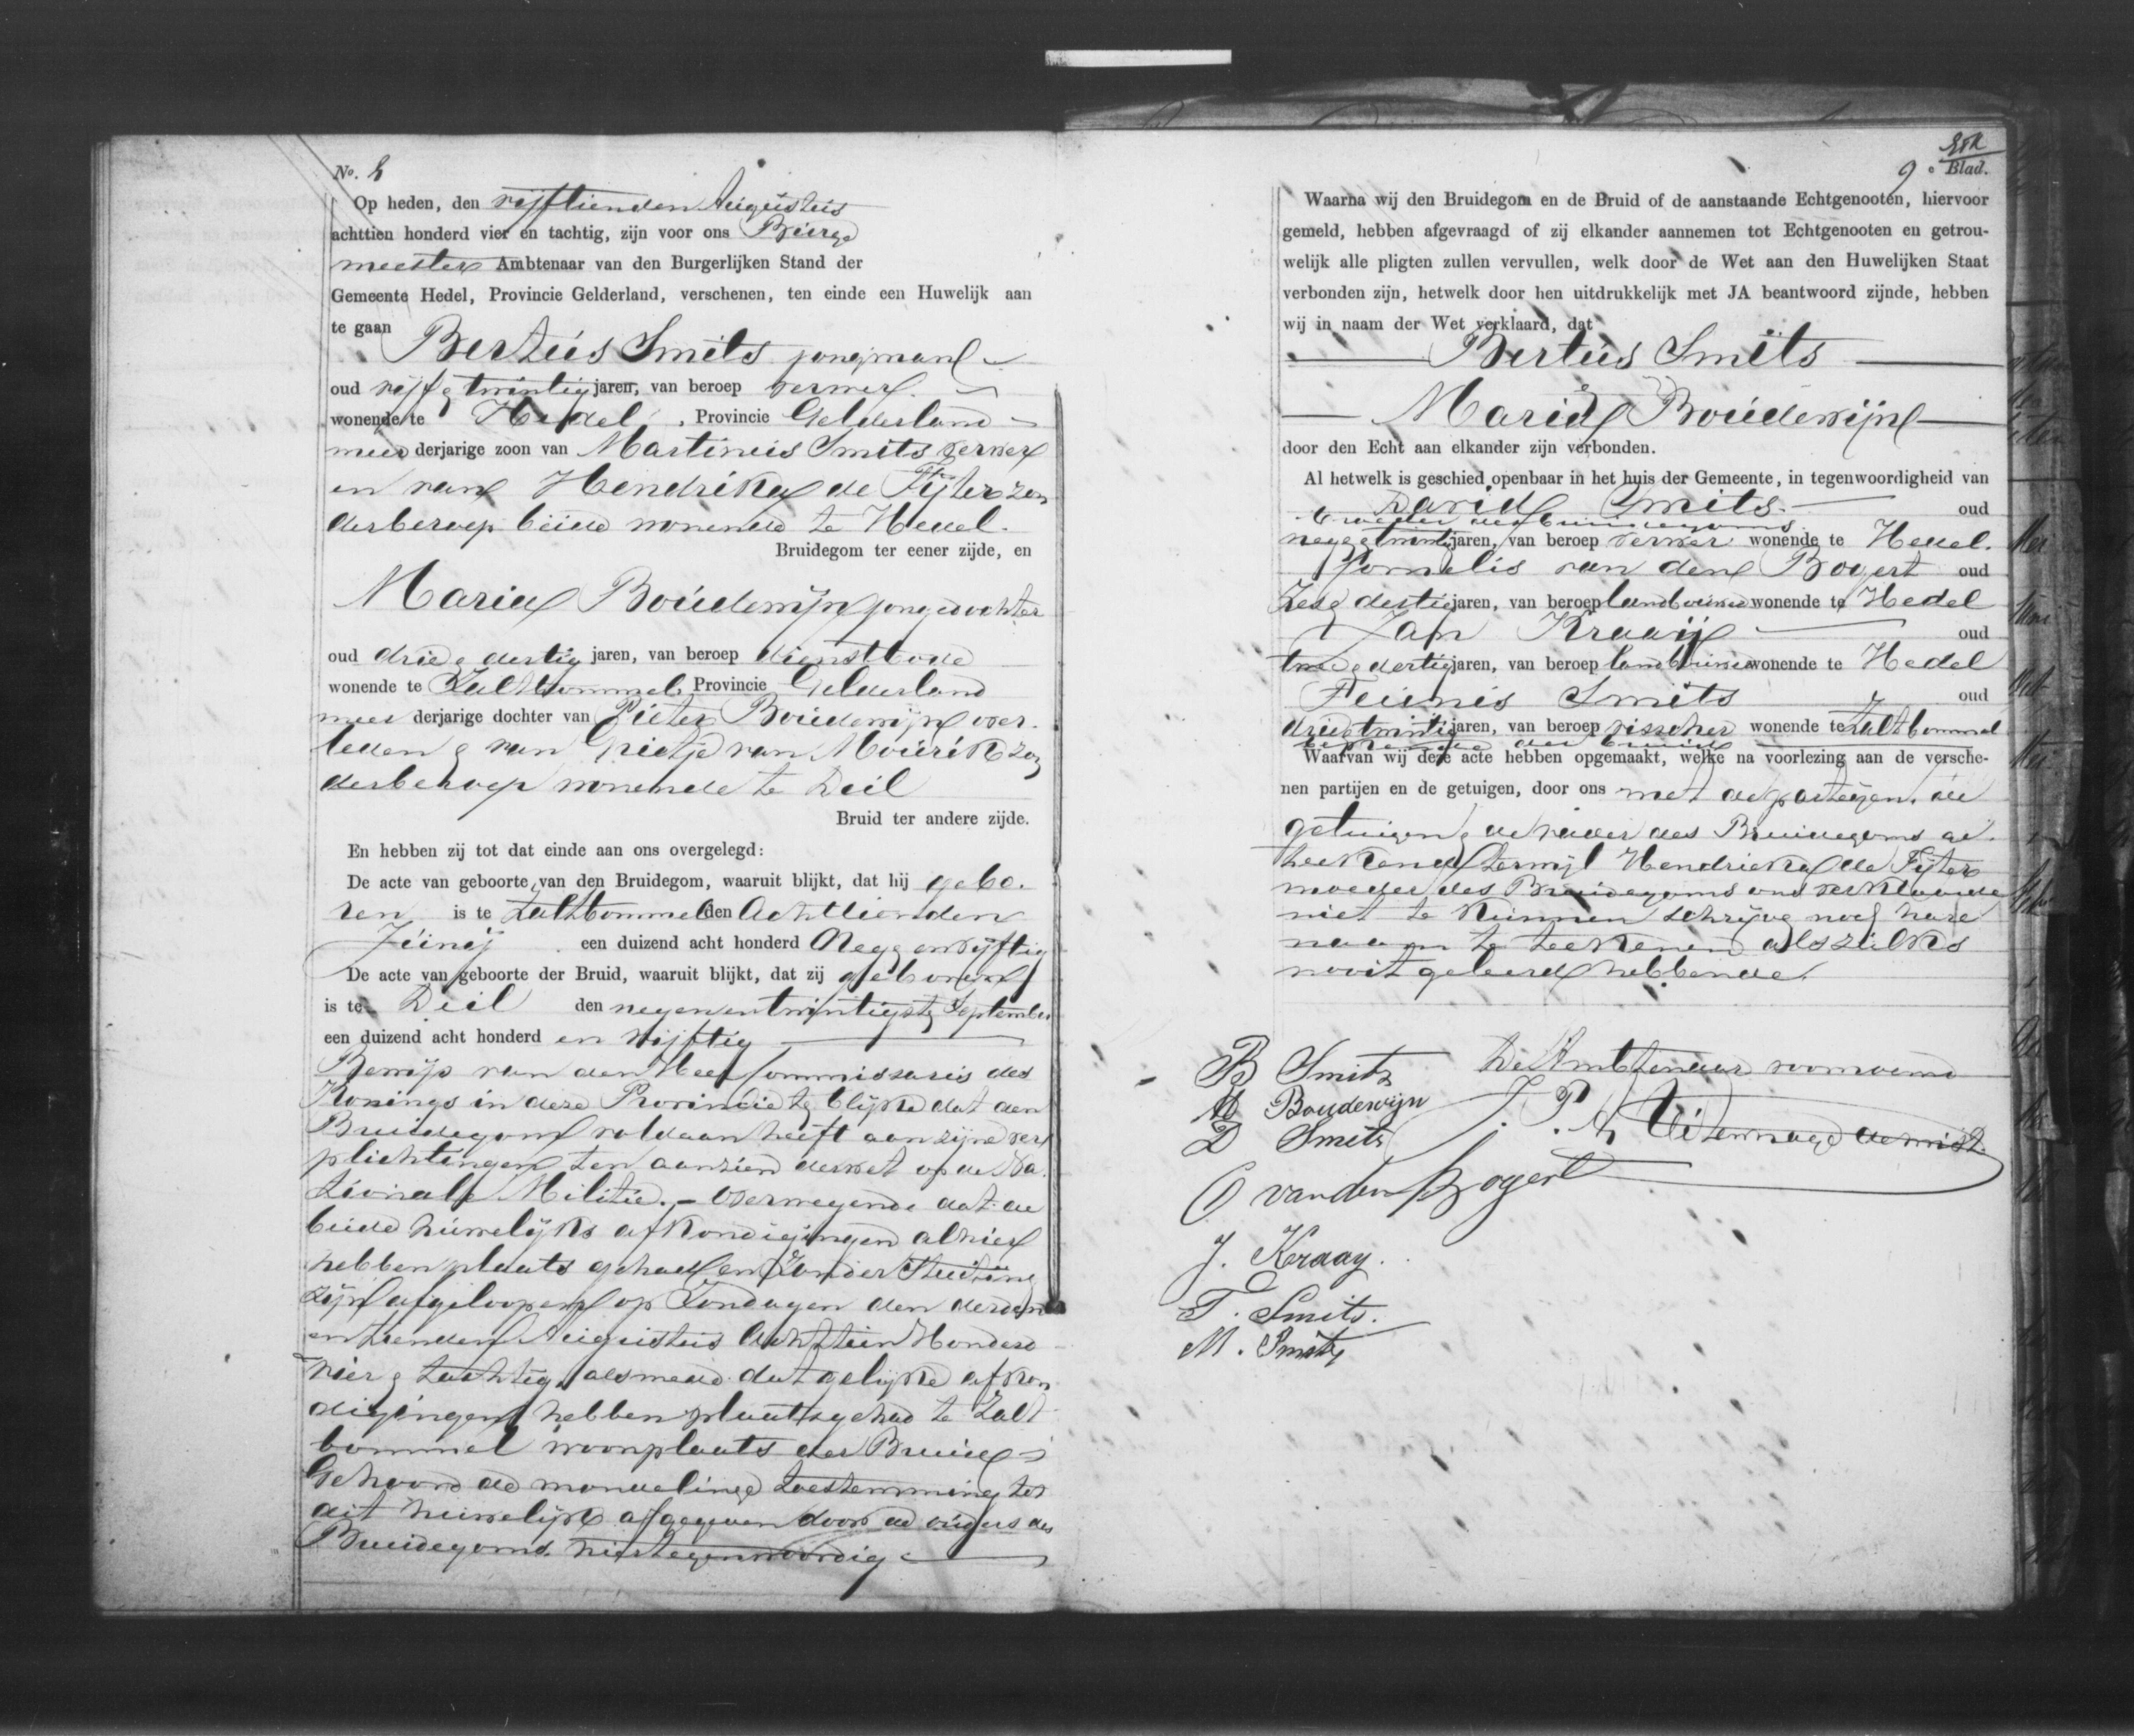 No. 8
Op heden, den vijftienden Augustus
achttien honderd vier en tachtig, zijn voor ons Burge
meester Ambtenaar van den Burgerlijken Stand der
Gemeente Hedel, Provincie Gelderland, verschenen, ten einde een Huwelijk aan
te gaan Bertus Smits jongman
oud vijf & twintig jaren, van beroep verwer
wonende te Hedel, Provincie Gelderland
meerderjarige zoon van Martinus Smits verwer
en van Hendrika de Fijter zon
der beroep beide wonende te Hedel.
Bruidegom ter eener zijde, en
Maria Boudewijn jongedochter
oud drie & dertig jaren, van beroep dienstbode
wonende te Zaltbommel Provincie Gelderland
meer derjarige dochter van Pieter Boudewijn over-
leden & van Pietje van Mourik zon
der beroep wonende te Deil
Bruid ter andere zijde.
En hebben zij tot dat einde aan ons overgelegd:
De acte van geboorte van den Bruidegom, waaruit blijkt, dat hij gebo-
ren is te Zaltbommel den Achttienden
Junij een duizend acht honderd Neg en vijftig
De acte van geboorte der Bruid, waaruit blijkt, dat zij geboren
is te Deil den negenentwintigste September
een duizend acht honderd en vijftig
Bewijs van den Heer Commissaris des
Konings in deze Provincie te blijke dat den
Bruidegom voldaan heeft aan zijne ver
plichtingen ten aanzien der wet op de Na
tionale Militie. - Overwegende dat de
beide huwelijks afkondigingen alhier
hebben plaats gehad en zonder Stuiting
zijn afgeloopen op Zondagen den derden
en tienden Augustus Achttien Honderd
vier & tachtig, alsmede dat gelijke afkon
digingen hebben plaats gehad te Zalt
bommel woonplaats der Bruid
Gehoord de mondelinge toestemming tot
dit huwelijk afgegeven door de ouders des
Bruidegoms hier tegenwoordig
9e Blad.
Waarna wij den Bruidegom en de Bruid of de aanstaande Echtgenooten, hiervoor
gemeld, hebben afgevraagd of zij elkander aannemen tot Echtgenooten en getrou-
welijk alle pligten zullen vervullen, welk door de Wet aan den Huwelijken Staat
verbonden zijn, hetwelk door hen uitdrukkelijk met JA beantwoord zijnde, hebben
wij in naam der Wet verklaard, dat
Bertus Smits
Maria Boudewijn
door den Echt aan elkander zijn verbonden.
Al hetwelk is geschied openbaar in het huis der Gemeente, in tegenwoordigheid van
David Smits oud
broeder des bruidegoms
neg & twintig jaren, van beroep verwer wonende te Hedel.
Cornelis van den Bogert oud
Zes & dertig jaren, van beroep landbouwer wonende te Hedel
Jan Kraaij oud
twee & dertig jaren, van beroep landbouwer wonende te Hedel
Teunis Smits oud
drie & twintig jaren, van beroep visscher wonende te Zaltbommel
Waarvan wij deze acte hebben opgemaakt, welke na voorlezing aan de versche-
nen partijen en de getuigen, door ons met de partijen, de
getuigen & de vader des Bruidegoms ge-
teekend terwijl Hendrieka de Fijter
moeder des Bruidegoms ons verklaarde
niet te kunnen schrijve noch hare
naam te teekenen als zulks
nooit geleerd hebbende.
B Smits De Ambtenaar voornoemd
M Boudewijn
D Smits
C van den Bogert
J. Kraay.
T. Smits.
M. Smits